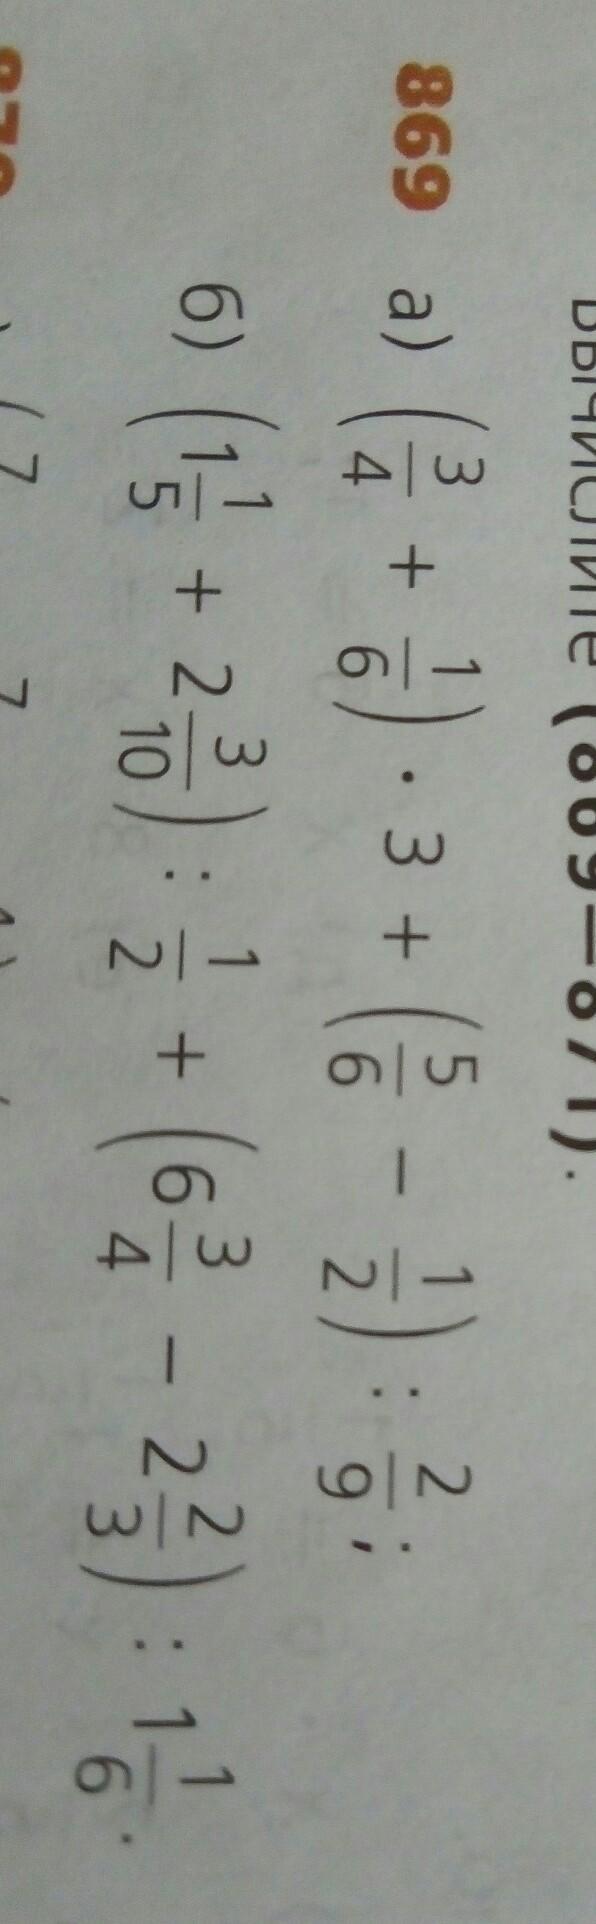 Вычислите (869—871).
869 а) (3/4 + 1/6) · 3 + (5/6 − 1/2) : 2/9;
б) (1 1/5 + 2 3/10) : 1/2 + (6 3/4 − 2 2/3) : 1 1/6.